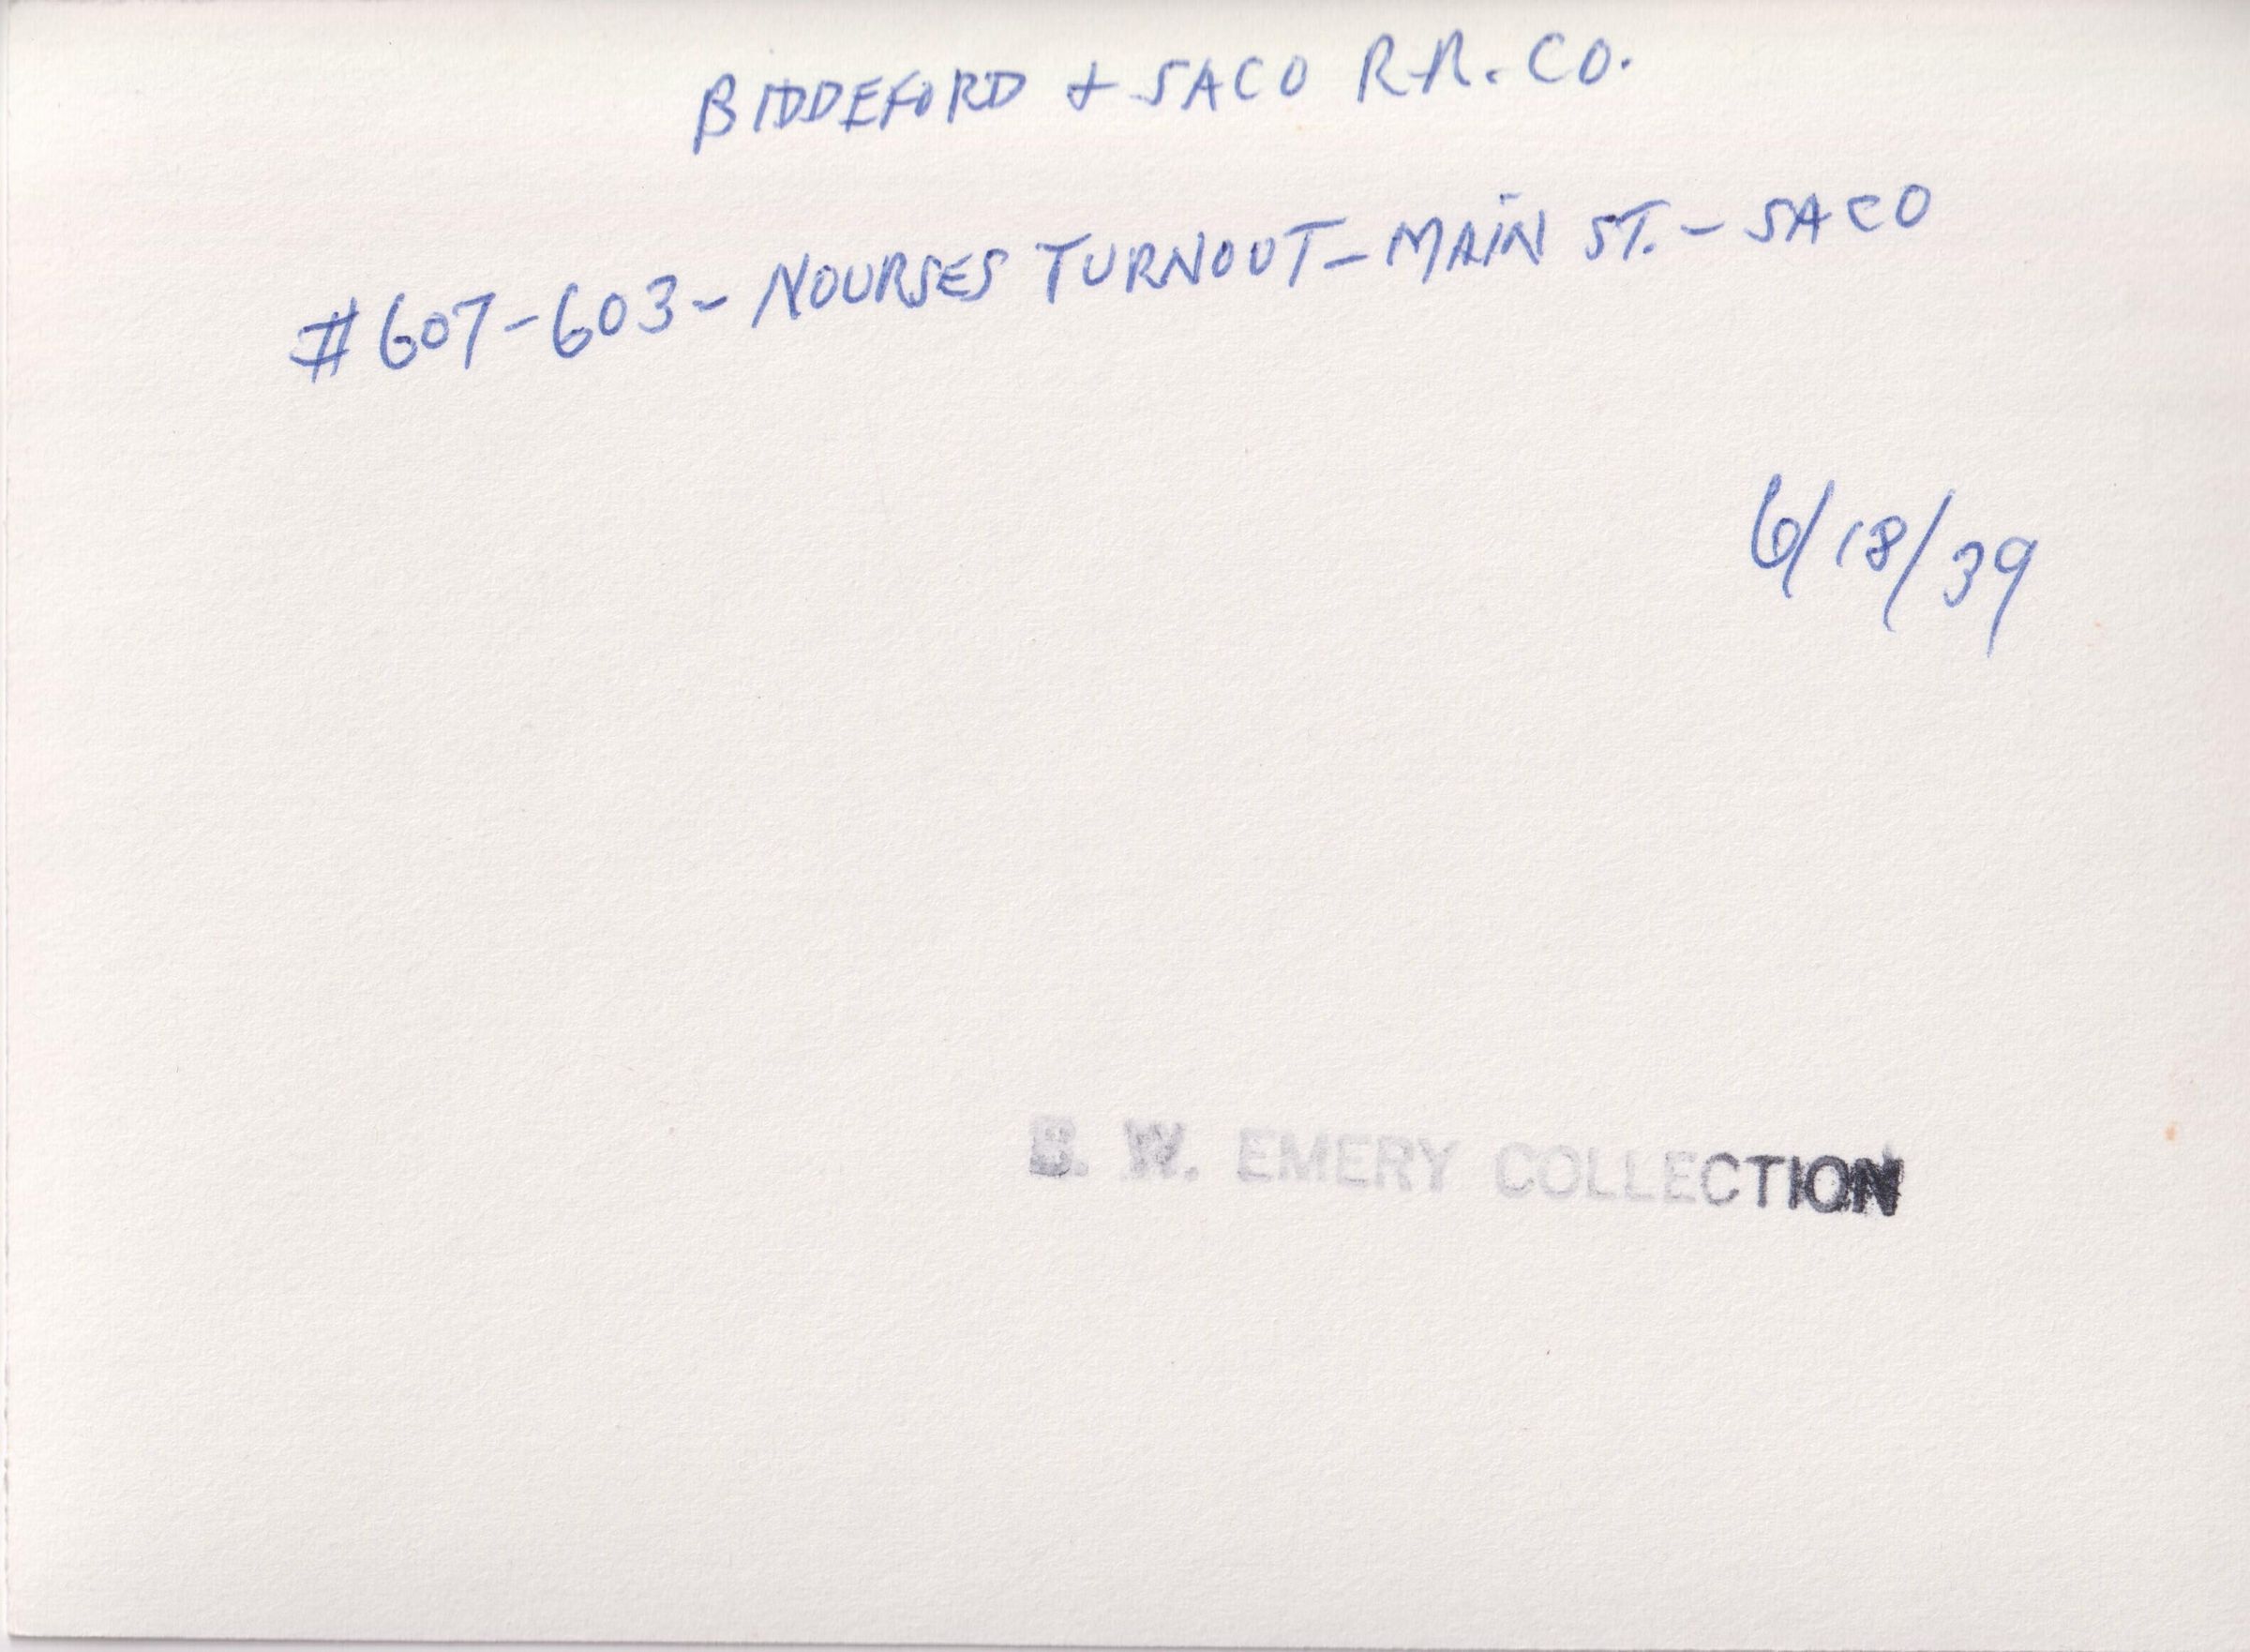 BIDDEFORD + SACO R.R. CO.
#607-603- NOURSES TURNOUT - MAIN ST. - SACO
6/18/39
W. EMERY COLLECTION